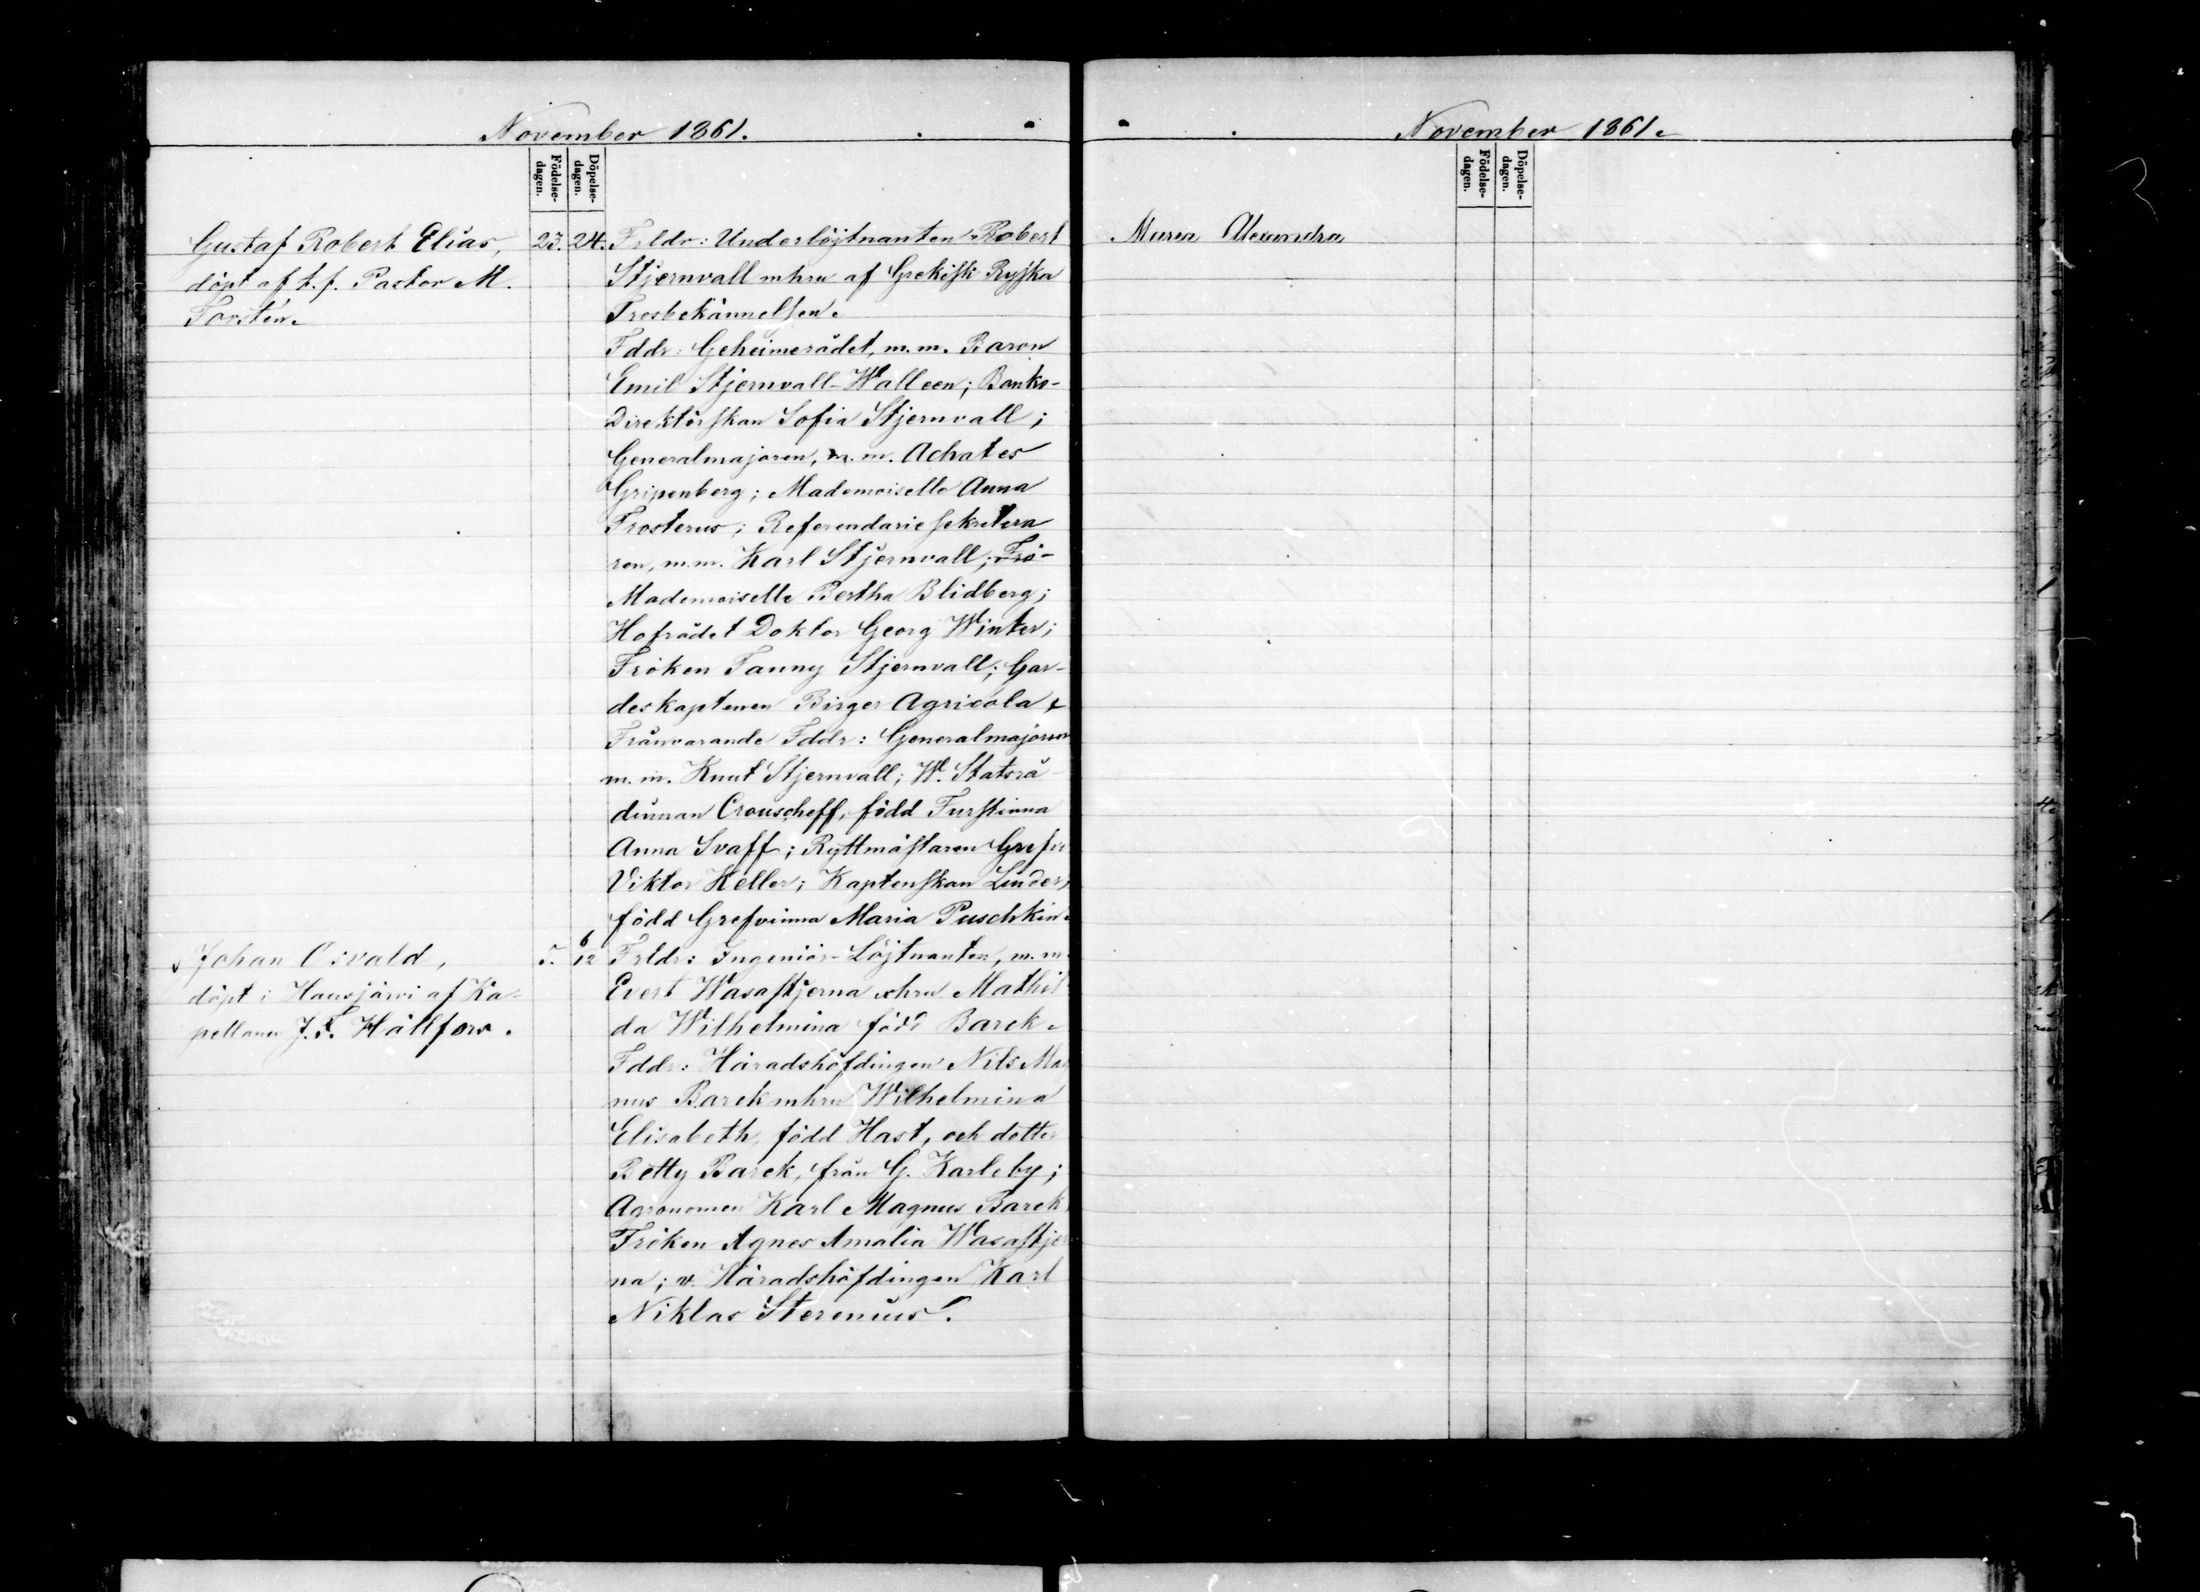 November 1861.
Födelse-
dagen.
Döpelse-
dagen.
Gustaf Robert Elias,
döpt af t.f. Pastor M.
Torstén.
23. 24.
Frldr: Underlöjtnanten Robert
Stjernvall mhru af Grekisk Ryska
Trosbekännelsen.
Fddr: Geheimerådet, m.m. Baron
Emil Stjernvall-Walleen; Banko-
Direktörskan Sofia Stjernvall;
Generalmajoren, m.m. Achates
Gripenberg; Mademoiselle Anna
Frosterus; Referendariesekretera
ren, m.m. Karl Stjernvall; Frö-
Mademoiselle Bertha Blidberg;
Hofrådet Doktor Georg Winter;
Fröken Fanny Stjernvall; Gar-
deskaptenen Birger Agricola
Frånvarande Fddr: Generalmajoren
m.m. Knut Stjernvall; W. Statsrå
dinnan Crouscheff, född Furstinna
Anna Svaff; Ryttmästaren Grefve
Viktor Keller; Kaptenskan Linder,
född Grefvinna Maria Puschkin.
Johan Osvald,
döpt i Hausjärvi af Ka-
pellanen J. F. Hällfors.
5. 6/12
Frldr: Ingeniör-Löjtnanten, m.m.
Evert Wasastjerna ochru Mathil
da Wilhelmina född Barck.
Fddr: Häradshöfdingen Nils Mag
nus Barck mhru Wilhelmina
Elisabeth, född Hast, och dotter
Betty Barck, från G. Karleby;
Agronomen Karl Magnus Barck,
Fröken Agnes Amalia Wasastjer
na; v. Häradshöfdingen Karl
Niklas Sterenius.
November 1861.
Födelse-
dagen.
Döpelse-
dagen.
Maria Alexandra